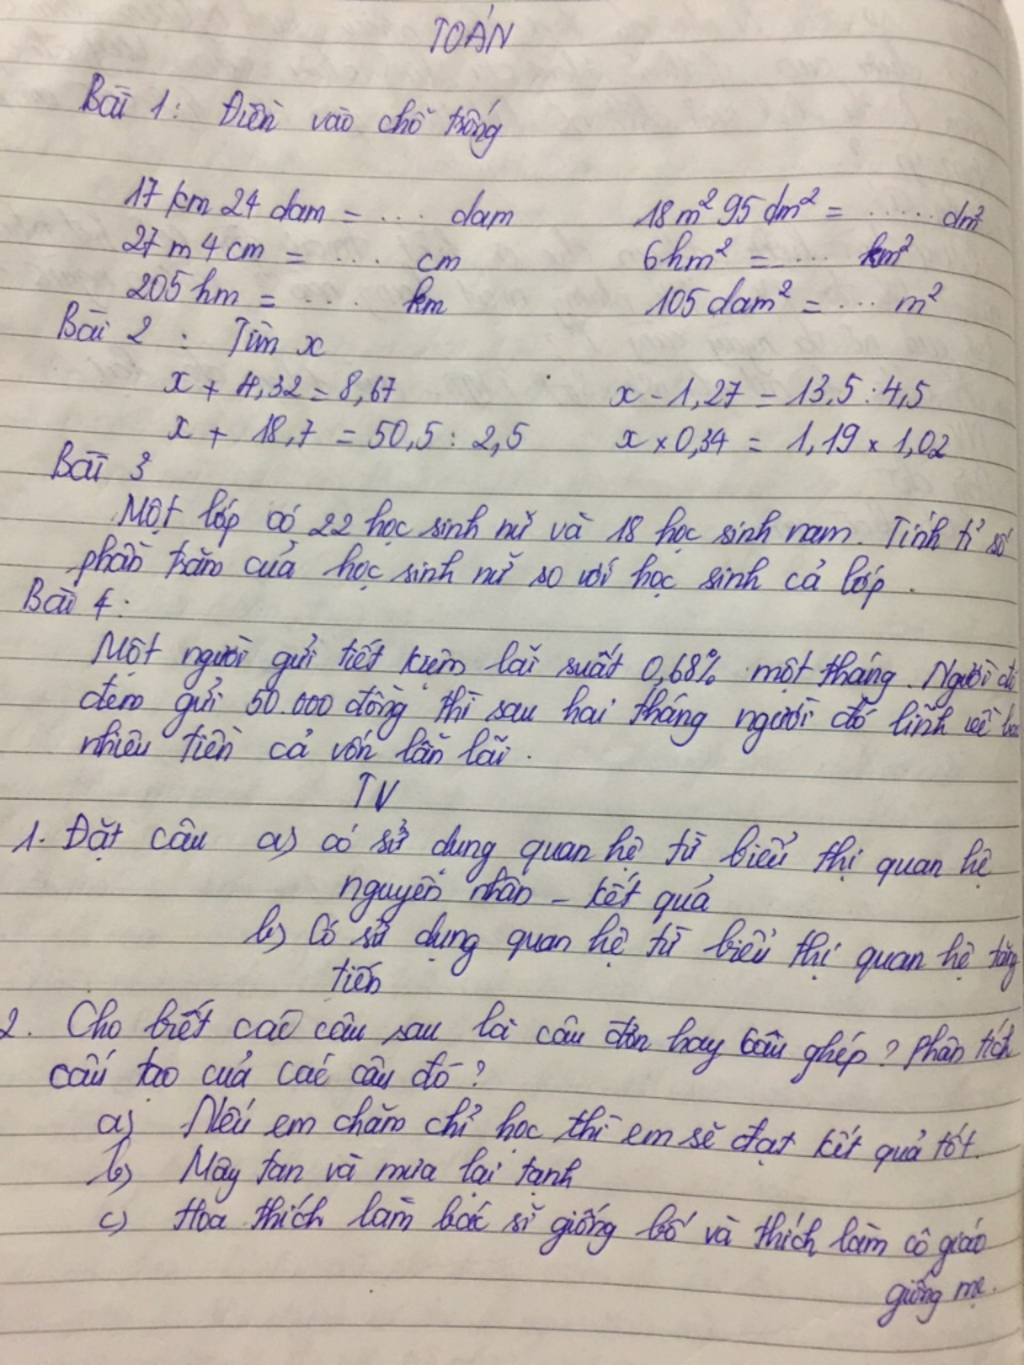 TOÁN
Bài 1: Điền vào chỗ trống
17 km 24 dam = .... dam 18 m² 95 dm² = ..... dm²
27 m 4 cm = .... cm 6 hm² = .... km²
205 hm = .... km 105 dam² = ... m²
Bài 2 : Tìm x
x + 4,32 = 8,67 x - 1,27 = 13,5 : 4,5
x + 18,7 = 50,5 : 2,5 x × 0,34 = 1,19 × 1,02
Bài 3
Một lớp có 22 học sinh nữ và 18 học sinh nam. Tính tỉ số
phần trăm của học sinh nữ so với học sinh cả lớp.
Bài 4:
Một người gửi tiết kiệm lãi suất 0,68% một tháng. Người đó
đem gửi 50.000 đồng thì sau hai tháng người đó lĩnh về
nhiêu tiền cả vốn lẫn lãi.
TV
1. Đặt câu a) có sử dụng quan hệ từ biểu thị quan hệ
nguyên nhân - kết quả
b) Có sử dụng quan hệ từ biểu thị quan hệ tăng
tiến
2. Cho biết các câu sau là câu đơn hay câu ghép? Phân tích
cấu tạo của các câu đó?
a) Nếu em chăm chỉ học thì em sẽ đạt kết quả tốt.
b) Mây tan và mưa lại tạnh
c) Hoa thích làm bác sĩ giống bố và thích làm cô giáo
giống mẹ.